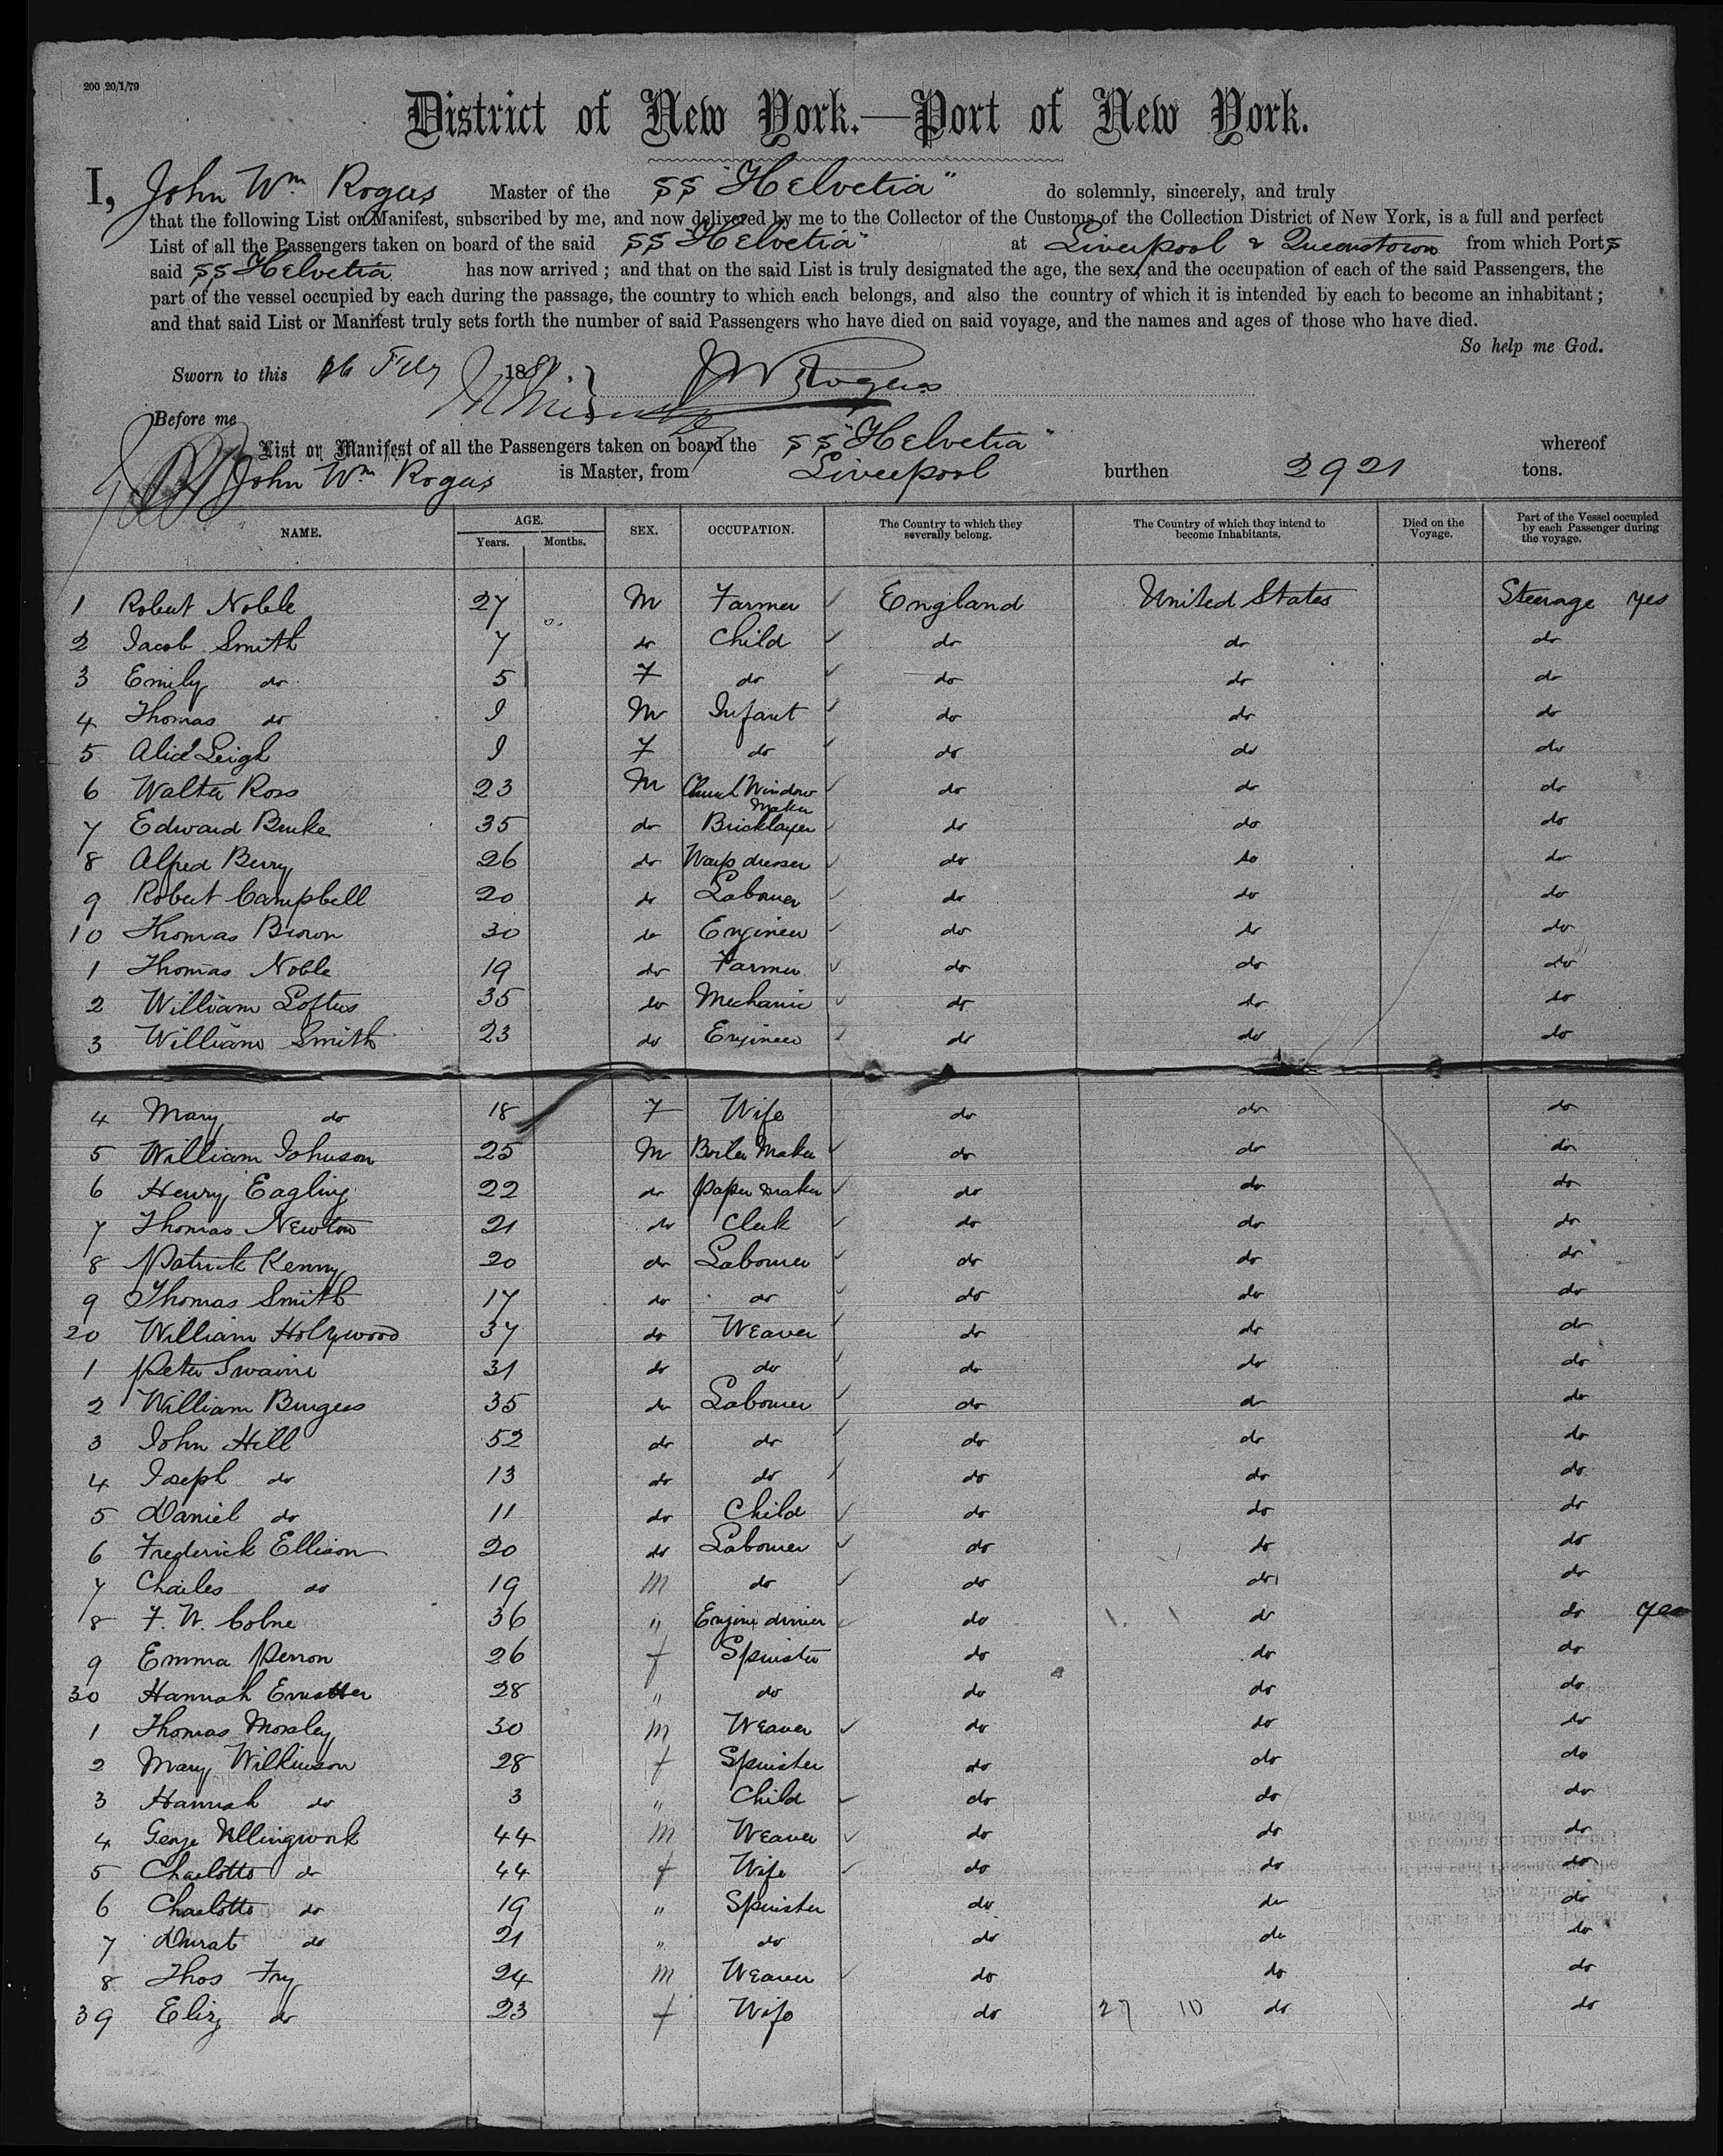 200 20/1/79
District of New York.—Port of New York.
I, John Wm Rogers Master of the SS "Helvetia" do solemnly, sincerely, and truly
that the following List or Manifest, subscribed by me, and now delivered by me to the Collector of the Customs of the Collection District of New York, is a full and perfect
List of all the Passengers taken on board of the said SS "Helvetia" at Liverpool & Queenstown from which Ports
said SS Helvetia has now arrived; and that on the said List is truly designated the age, the sex, and the occupation of each of the said Passengers, the
part of the vessel occupied by each during the passage, the country to which each belongs, and also the country of which it is intended by each to become an inhabitant;
and that said List or Manifest truly sets forth the number of said Passengers who have died on said voyage, and the names and ages of those who have died.
So help me God.
Sworn to this 16 Feby 188 J W Rogers
Before me
List or Manifest of all the Passengers taken on board the SS "Helvetia" whereof
John Wm Rogers is Master, from Liverpool burthen 2921 tons.
NAME. AGE. Years. Months. SEX. OCCUPATION. The Country to which they severally belong. The Country of which they intend to become Inhabitants. Died on the Voyage. Part of the Vessel occupied by each Passenger during the voyage.
1 Robert Noble 27 M Farmer England United States Steerage yes
2 Jacob Smith 7 do Child do do do
3 Emily do 5 F do do do do
4 Thomas do I M Infant do do do
5 Alice Leigh I F do do do do
6 Walter Ross 23 M Church Window Maker do do do
7 Edward Burke 35 do Bricklayer do do do
8 Alfred Berry 26 do Warp dresser do do do
9 Robert Campbell 20 do Labourer do do do
10 Thomas Brown 30 do Engineer do do do
1 Thomas Noble 19 do Farmer do do do
2 William Loftus 35 do Mechanic do do do
3 William Smith 23 do Engineer do do do
4 Mary do 18 F Wife do do do
5 William Johnson 25 M Boiler Maker do do do
6 Henry Eagling 22 do paper maker do do do
7 Thomas Newton 21 do Clerk do do do
8 Patrick Kenny 20 do Labourer do do do
9 Thomas Smith 17 do do do do do
20 William Holywood 37 do Weaver do do do
1 Peter Swaine 31 do do do do do
2 William Burgess 35 do Labourer do do do
3 John Hill 52 do do do do do
4 Joseph do 13 do do do do do
5 Daniel do 11 do Child do do do
6 Frederick Ellison 20 do Labourer do do do
7 Charles do 19 M do do do do
8 F. W. Colne 36 " Engine driver do do do yes
9 Emma Perron 26 f Spinster do do do
30 Hannah 28 " do do do do
1 Thomas Mosley 30 M Weaver do do do
2 Mary Wilkinson 28 f Spinster do do do
3 Hannah do 3 " Child do do do
4 George Illingwork 44 M Weaver do do do
5 Charlotte do 44 f Wife do do do
6 Charlotte do 19 " Spinster do do do
7 do 21 " do do do do
8 Thos Fry 24 M Weaver do do do
39 Eliz do 23 f Wife do 27 10 do do